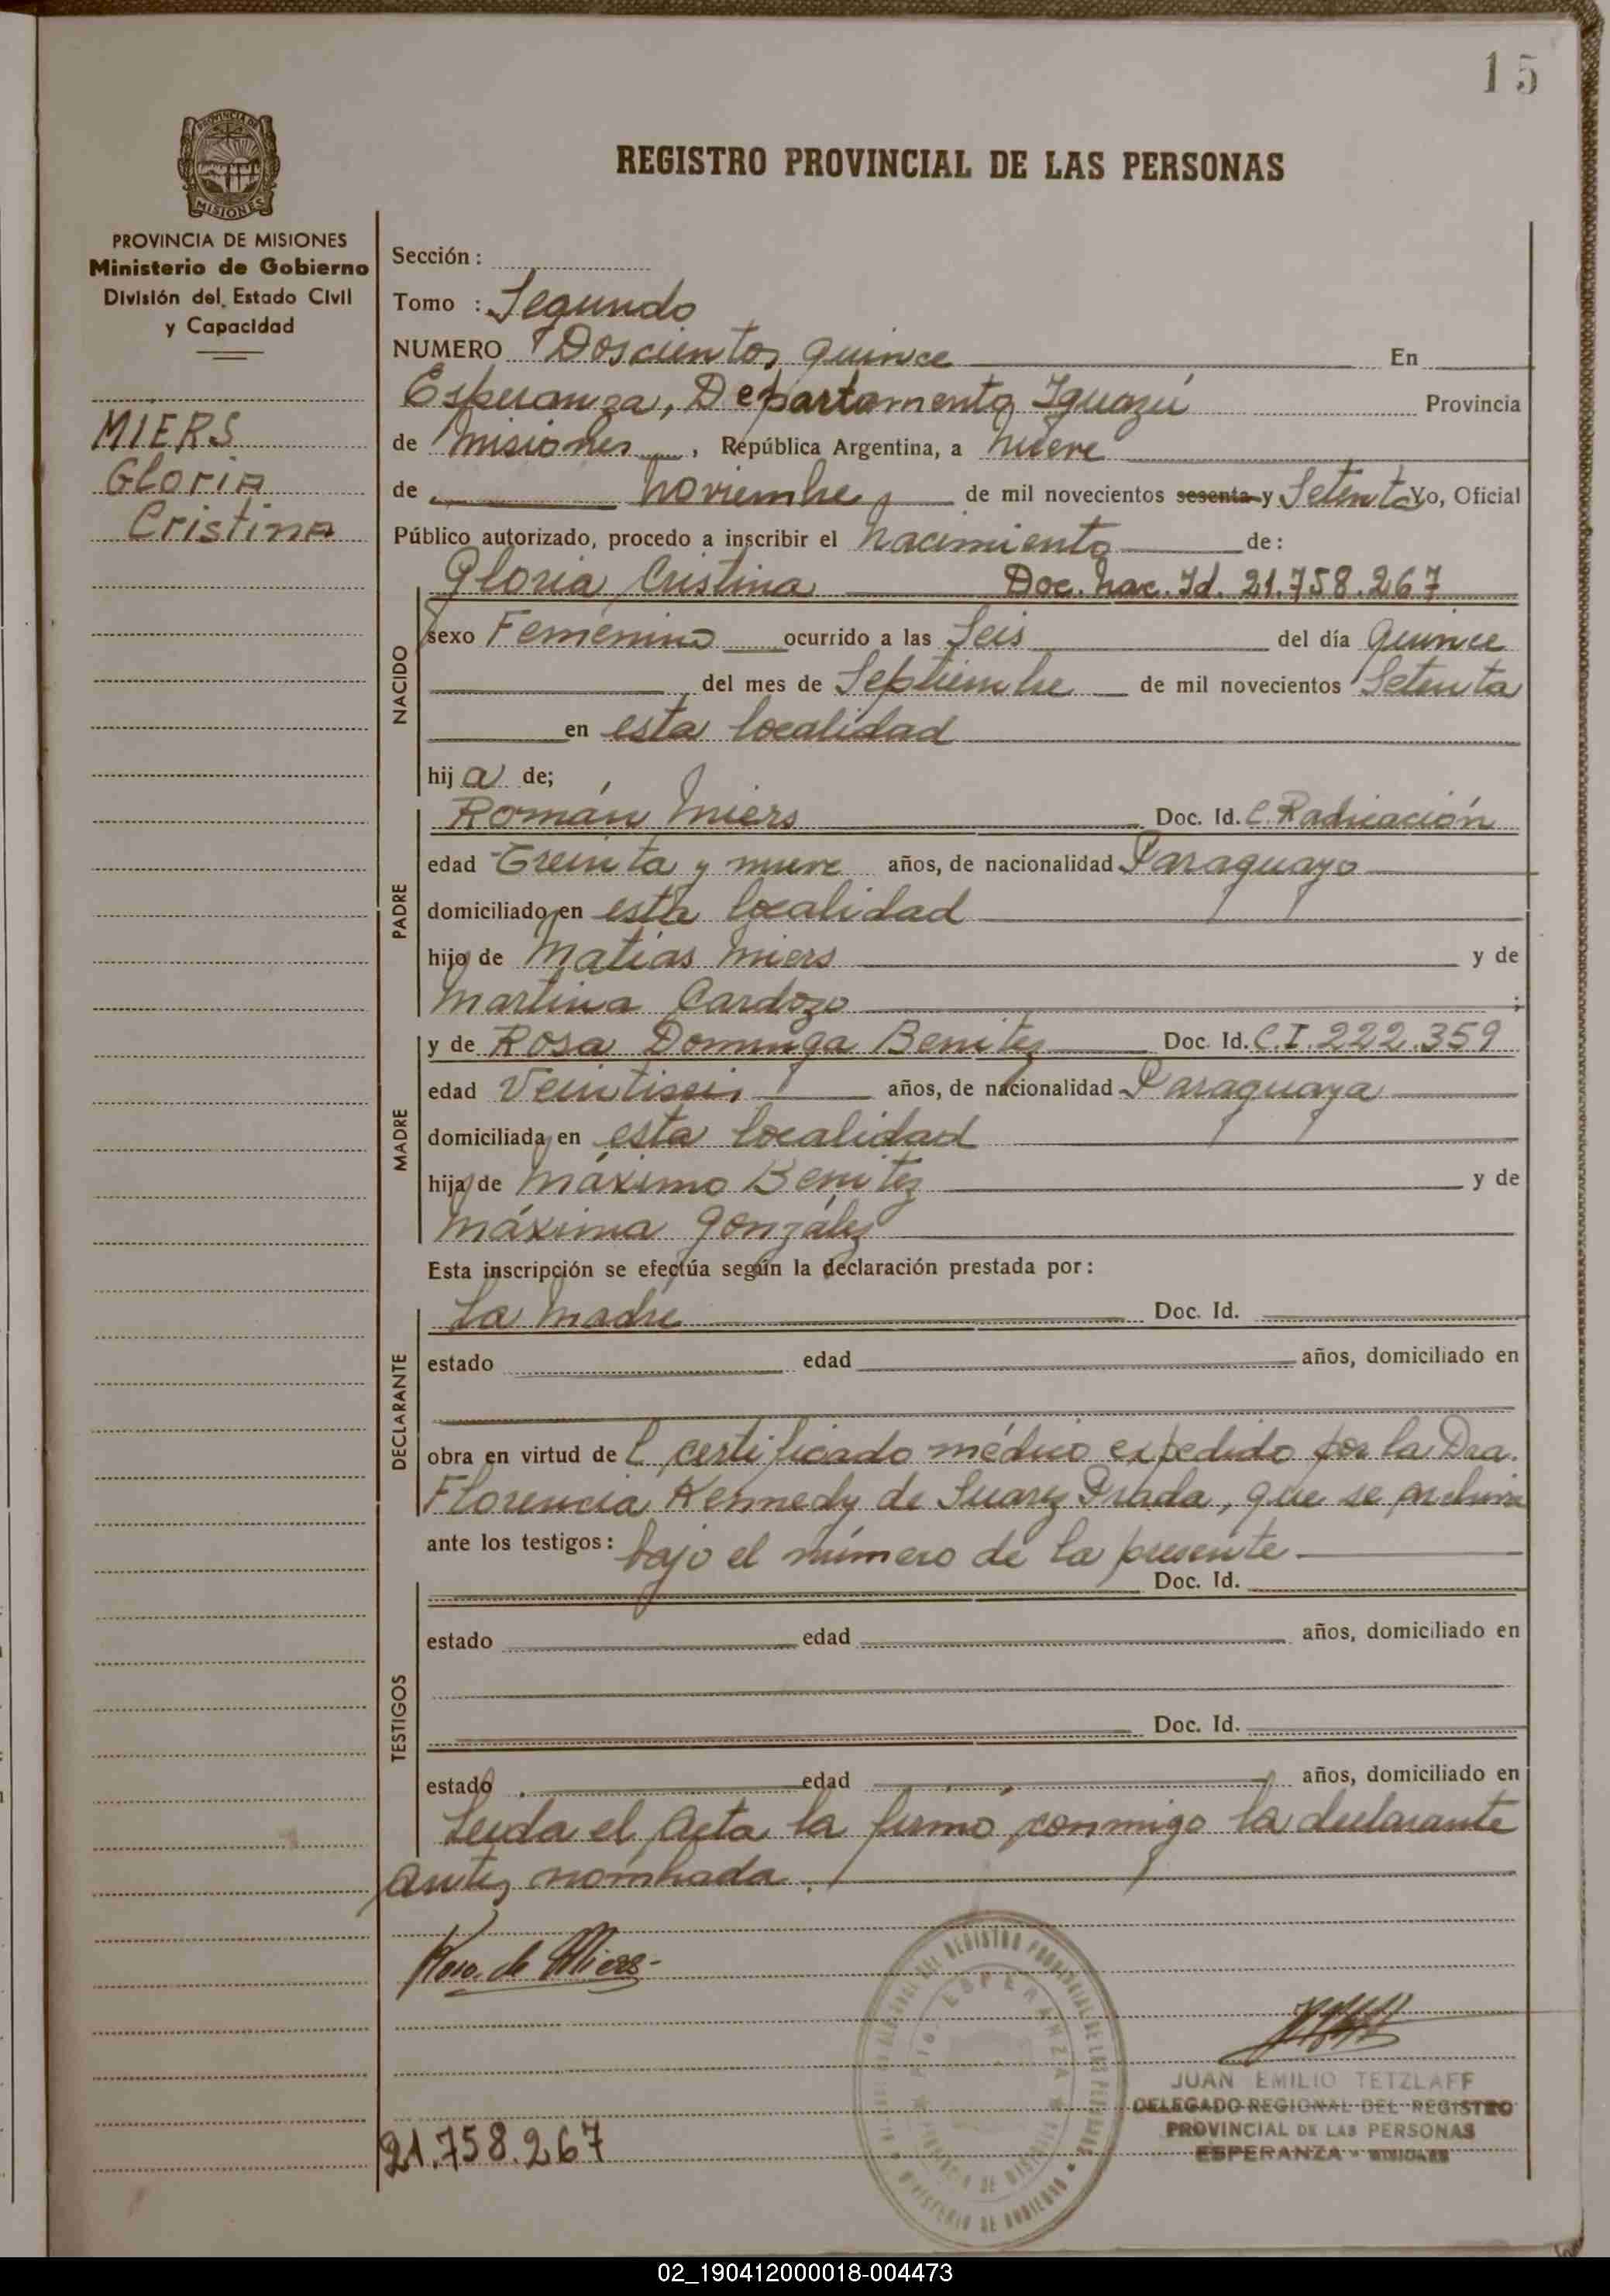 15
REGISTRO PROVINCIAL DE LAS PERSONAS
PROVINCIA DE MISIONES
PROVINCIA DE MISIONES
Ministerio de Gobierno
División del Estado Civil
y Capacidad
MIERS
Gloria
Cristina
Sección :
Tomo : Segundo
NUMERO Doscientos quince En
Esperanza, Departamento Iguazú Provincia
de Misiones, República Argentina, a nueve
de noviembre de mil novecientos sesenta y Setenta Yo, Oficial
Público autorizado, procedo a inscribir el nacimiento de:
Gloria Cristina Doc. nac. Id. 21.758.267
NACIDO
sexo Femenino ocurrido a las Seis del día quince
del mes de Septiembre de mil novecientos Setenta
en esta localidad
hij a de;
PADRE
Román Miers Doc. Id. C. Radicación
edad Treinta y nueve años, de nacionalidad Paraguayo
domiciliado en esta localidad
hijo de Matías Miers y de
Martina Cardozo ;
MADRE
y de Rosa Dominga Benitez Doc. Id. C.I. 222.359
edad Veintiseis años, de nacionalidad Paraguaya
domiciliada en esta localidad
hija de Máximo Benitez y de
Máxima González
Esta inscripción se efectúa según la declaración prestada por:
DECLARANTE
La madre Doc. Id.
estado edad años, domiciliado en
obra en virtud de l certificado médico expedido por la Dra.
Florencia Kennedy de Suarez Prada, que se archiva
ante los testigos: bajo el número de la presente
TESTIGOS
Doc. Id.
estado edad años, domiciliado en
Doc. Id.
estado edad años, domiciliado en
Leida el Acta la firmó conmigo la declarante
antes nombrada.
Rosa de Miers
ESPERANZA
JUAN EMILIO TETZLAFF
DELEGADO REGIONAL DEL REGISTRO
PROVINCIAL DE LAS PERSONAS
ESPERANZA - MISIONES
21.758.267
02_190412000018-004473